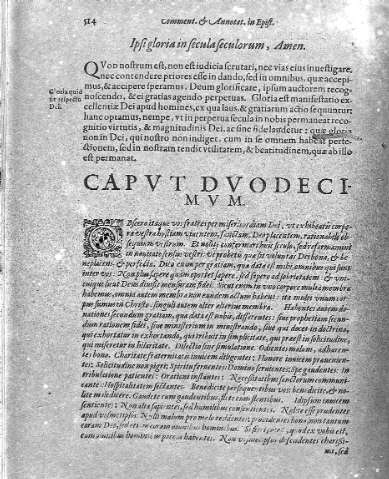 514 Comment. & Annotat. in Epist.
Ipsi gloria in secula seculorum, Amen.
QVod nostrum est, non est iudicia scrutari, nec vias eius inuestigare,
nec contendere priores esse in dando, sed in omnibus, quæ accepi-
mus, & accipere speramus, Deum glorificare, ipsum auctorem recog-
noscendo, & ei gratias agendo perpetuas. Gloria est manifestatio ex-
cellentiæ Dei apud homines, ex qua laus, & gratiarum actio sequuntur:
hanc optamus, nempe, vt in perpetua secula in nobis permaneat recog-
nitio virtutis, & magnitudinis Dei, ac sine fide laudetur: quæ gloria
non in Dei, qui nostro non indiget, cum in se omnem habeat perfe-
ctionem, sed in nostram tendit vtilitatem, & beatitudinem, quæ ab illo
est permanat.
Gloria quid
sit respectu
Dei.
CAPVT DVODECI-
MVM.
OBsecro itaque vos fratres per misericordiam Dei, vt exhibeatis corpo-
ra vestra hostiam viuentem, sanctam, Deo placentem, rationabile ob-
sequium vestrum. Et nolite conformari huic seculo, sed reformamini
in nouitate sensus vestri: vt probetis quæ sit voluntas Dei bona, & be-
neplacens, & perfecta. Dico enim per gratiam, quæ data est mihi, omnibus qui sunt
inter vos: Non plus sapere quàm oportet sapere, sed sapere ad sobrietatem: & vni-
cuique sicut Deus diuisit mensuram fidei. Sicut enim in vno corpore multa membra
habemus, omnia autem membra non eundem actum habent: ita multi vnum cor-
pus sumus in Christo, singuli autem alter alterius membra. Habentes autem do-
nationes secundum gratiam, quæ data est nobis, differentes: siue prophetiam secun-
dum rationem fidei, siue ministerium in ministrando, siue qui docet in doctrina,
qui exhortatur in exhortando, qui tribuit in simplicitate, qui præest in solicitudine,
qui miseretur in hilaritate. Dilectio sine simulatione. Odientes malum, adhæren-
tes bono. Charitate fraternitatis inuicem diligentes: Honore inuicem præuenien-
tes: Solicitudine non pigri: Spiritu feruentes: Domino seruientes: Spe gaudentes: In
tribulatione patientes: Orationi instantes: Necessitatibus sanctorum communi-
cantes: Hospitalitatem sectantes. Benedicite persequentibus vos: benedicite, & no-
lite maledicere. Gaudete cum gaudentibus, flete cum flentibus. Idipsum inuicem
sentientes: Non alta sapientes, sed humilibus consentientes. Nolite esse prudentes
apud vosmetipsos: Nulli malum pro malo reddentes: prouidentes bona non tantum
coram Deo, sed etiam coram omnibus hominibus. Si fieri potest, quod ex vobis est,
cum omnibus hominibus pacem habentes. Non vosmetipsos defendentes charissi-
mi, sed